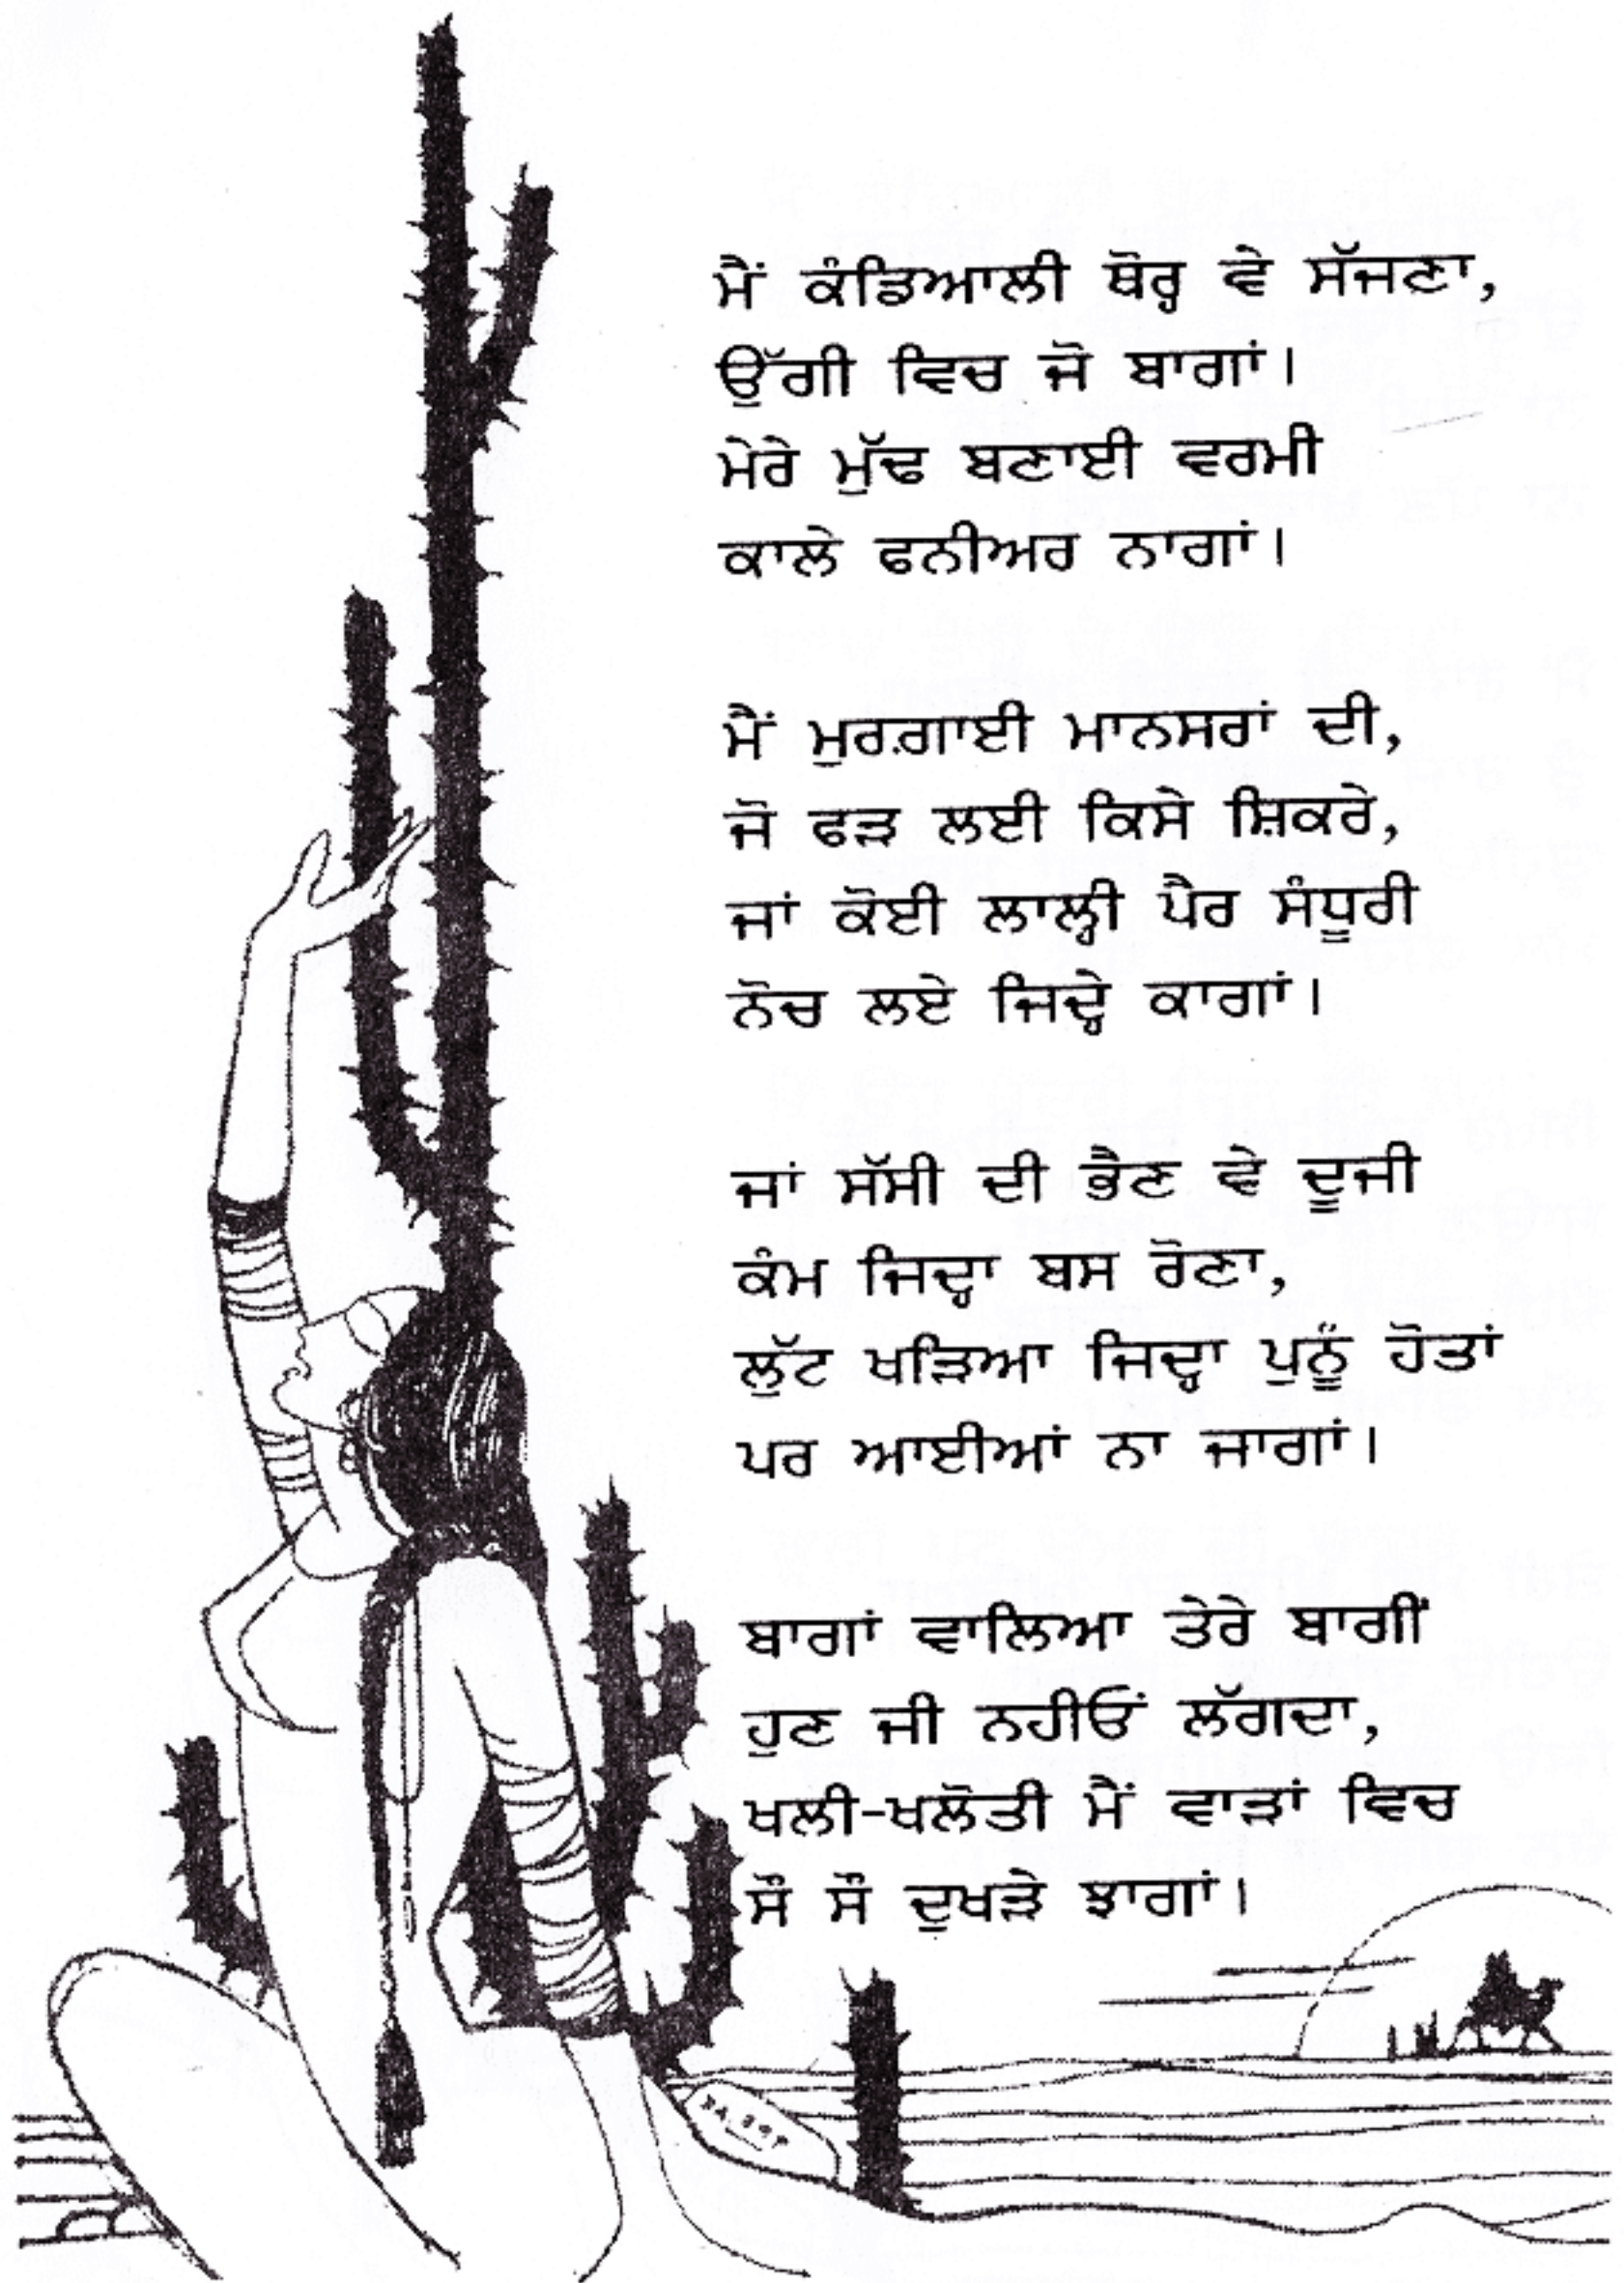 ਮੈਂ ਕੰਡਿਆਲੀ ਥੋਰ੍ਹ ਵੇ ਸੱਜਣਾ,
ਉੱਗੀ ਵਿਚ ਜੋ ਬਾਗਾਂ।
ਮੇਰੇ ਮੁੱਢ ਬਣਾਈ ਵਰਮੀ
ਕਾਲੇ ਫਨੀਅਰ ਨਾਗਾਂ।
ਮੈਂ ਮੁਰਗ਼ਾਈ ਮਾਨਸਰਾਂ ਦੀ,
ਜੋ ਫੜ ਲਈ ਕਿਸੇ ਸ਼ਿਕਰੇ,
ਜਾਂ ਕੋਈ ਲਾਲ੍ਹੀ ਪੈਰ ਸੰਧੂਰੀ
ਨੋਚ ਲਏ ਜਿਦ੍ਹੇ ਕਾਗਾਂ।
ਜਾਂ ਸੱਸੀ ਦੀ ਭੈਣ ਵੇ ਦੂਜੀ
ਕੰਮ ਜਿਦ੍ਹਾ ਬਸ ਰੋਣਾ,
ਲੁੱਟ ਖੜਿਆ ਜਿਦ੍ਹਾ ਪੁਨੂੰ ਹੋਤਾਂ
ਪਰ ਆਈਆਂ ਨਾ ਜਾਗਾਂ।
ਬਾਗਾਂ ਵਾਲਿਆ ਤੇਰੇ ਬਾਗੀਂ
ਹੁਣ ਜੀ ਨਹੀਓਂ ਲੱਗਦਾ,
ਖਲੀ-ਖਲੋਤੀ ਮੈਂ ਵਾੜਾਂ ਵਿਚ
ਸੌ ਸੌ ਦੁਖੜੇ ਝਾਗਾਂ।